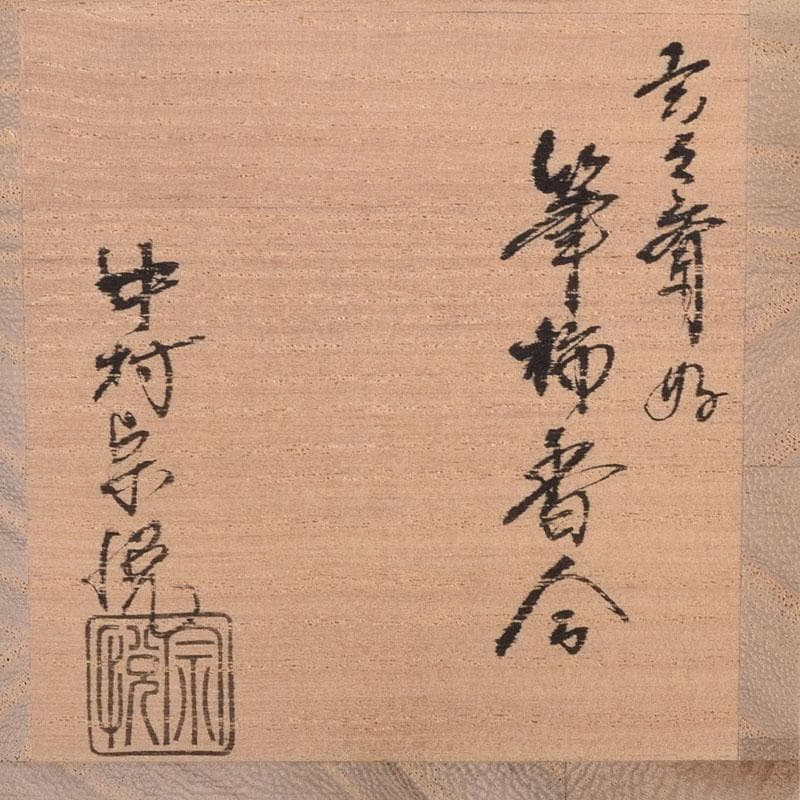 玄々斎好
筆柿香合
中村宗悦
宗悦